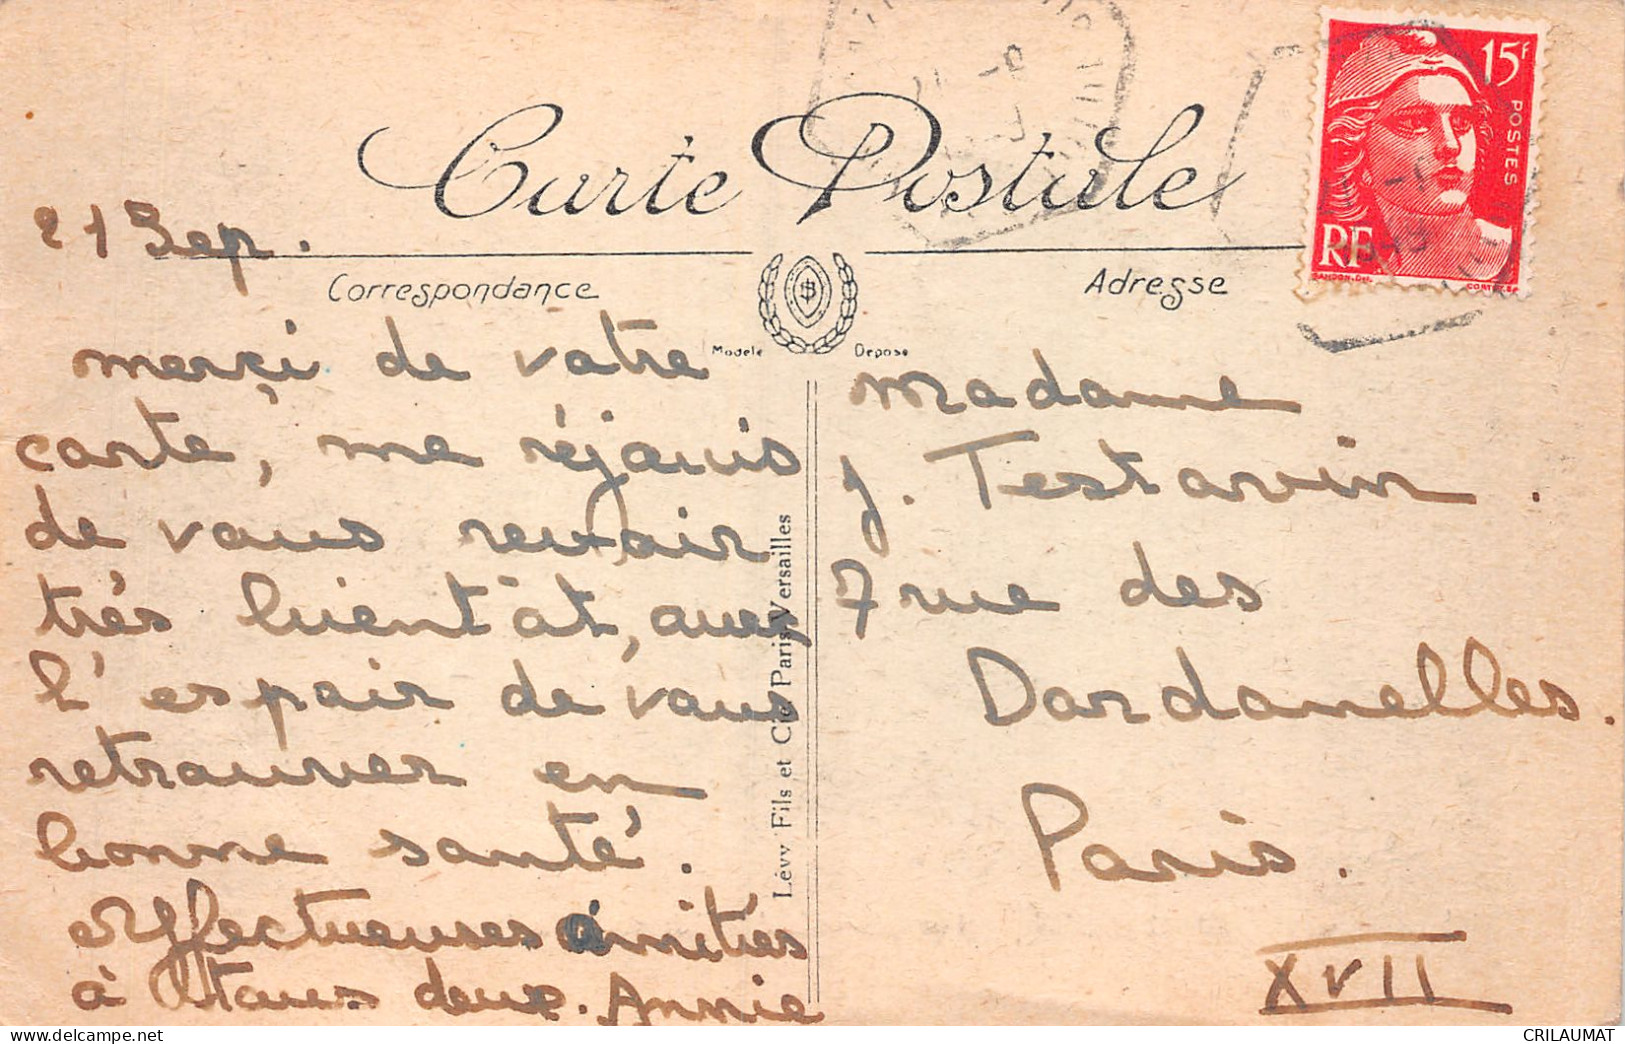 Carte Postale
15F
POSTES
RF
21 Sep.
Correspondance
Adresse
Modele Depose
merçi de votre
carte, me réjouis
de vous revoir
très bientôt, avec
l'espoir de vous
retrouver en
bonne santé.
Affectueuses amitiés
à toutes deux. Annie
Madame
J. Testavin.
7 rue des
Dardanelles.
Paris.
XVII
Lévy Fils et Cie Paris-Versailles
CRILAUMAT